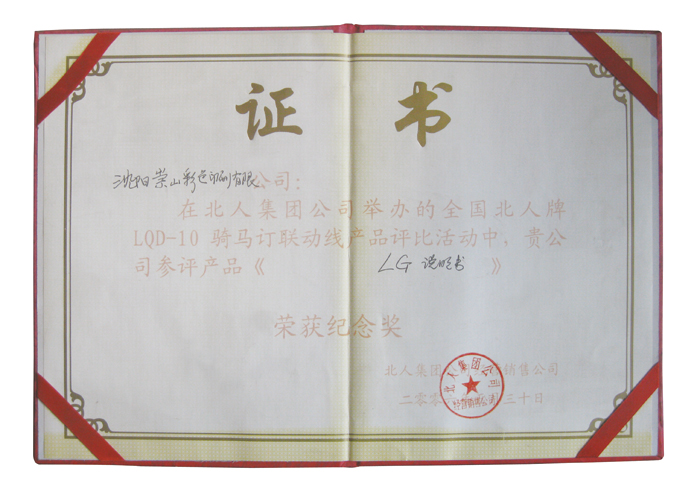 证 书
沈阳荣山彩色印刷有限公司：
在北人集团公司举办的全国北人牌
LQD-10 骑马订联动线产品评比活动中，贵公
司参评产品《 LG 说明书 》
荣获纪念奖
北人集团 销售公司
二零零 三十日
北人集团公司
经营销售公司